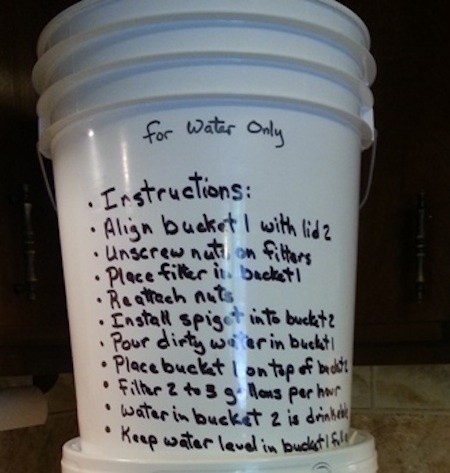 For Water Only
• Instructions:
• Align bucket 1 with lid 2
• Unscrew nuts on filters
• Place filter in bucket 1
• Reattach nuts
• Install spiget into bucket 2
• Pour dirty water in bucket 1
• Place bucket 1 on top of bucket 2
• Filter 2 to 3 gallons per hour
• Water in bucket 2 is drinkable
• Keep water level in bucket 1 full